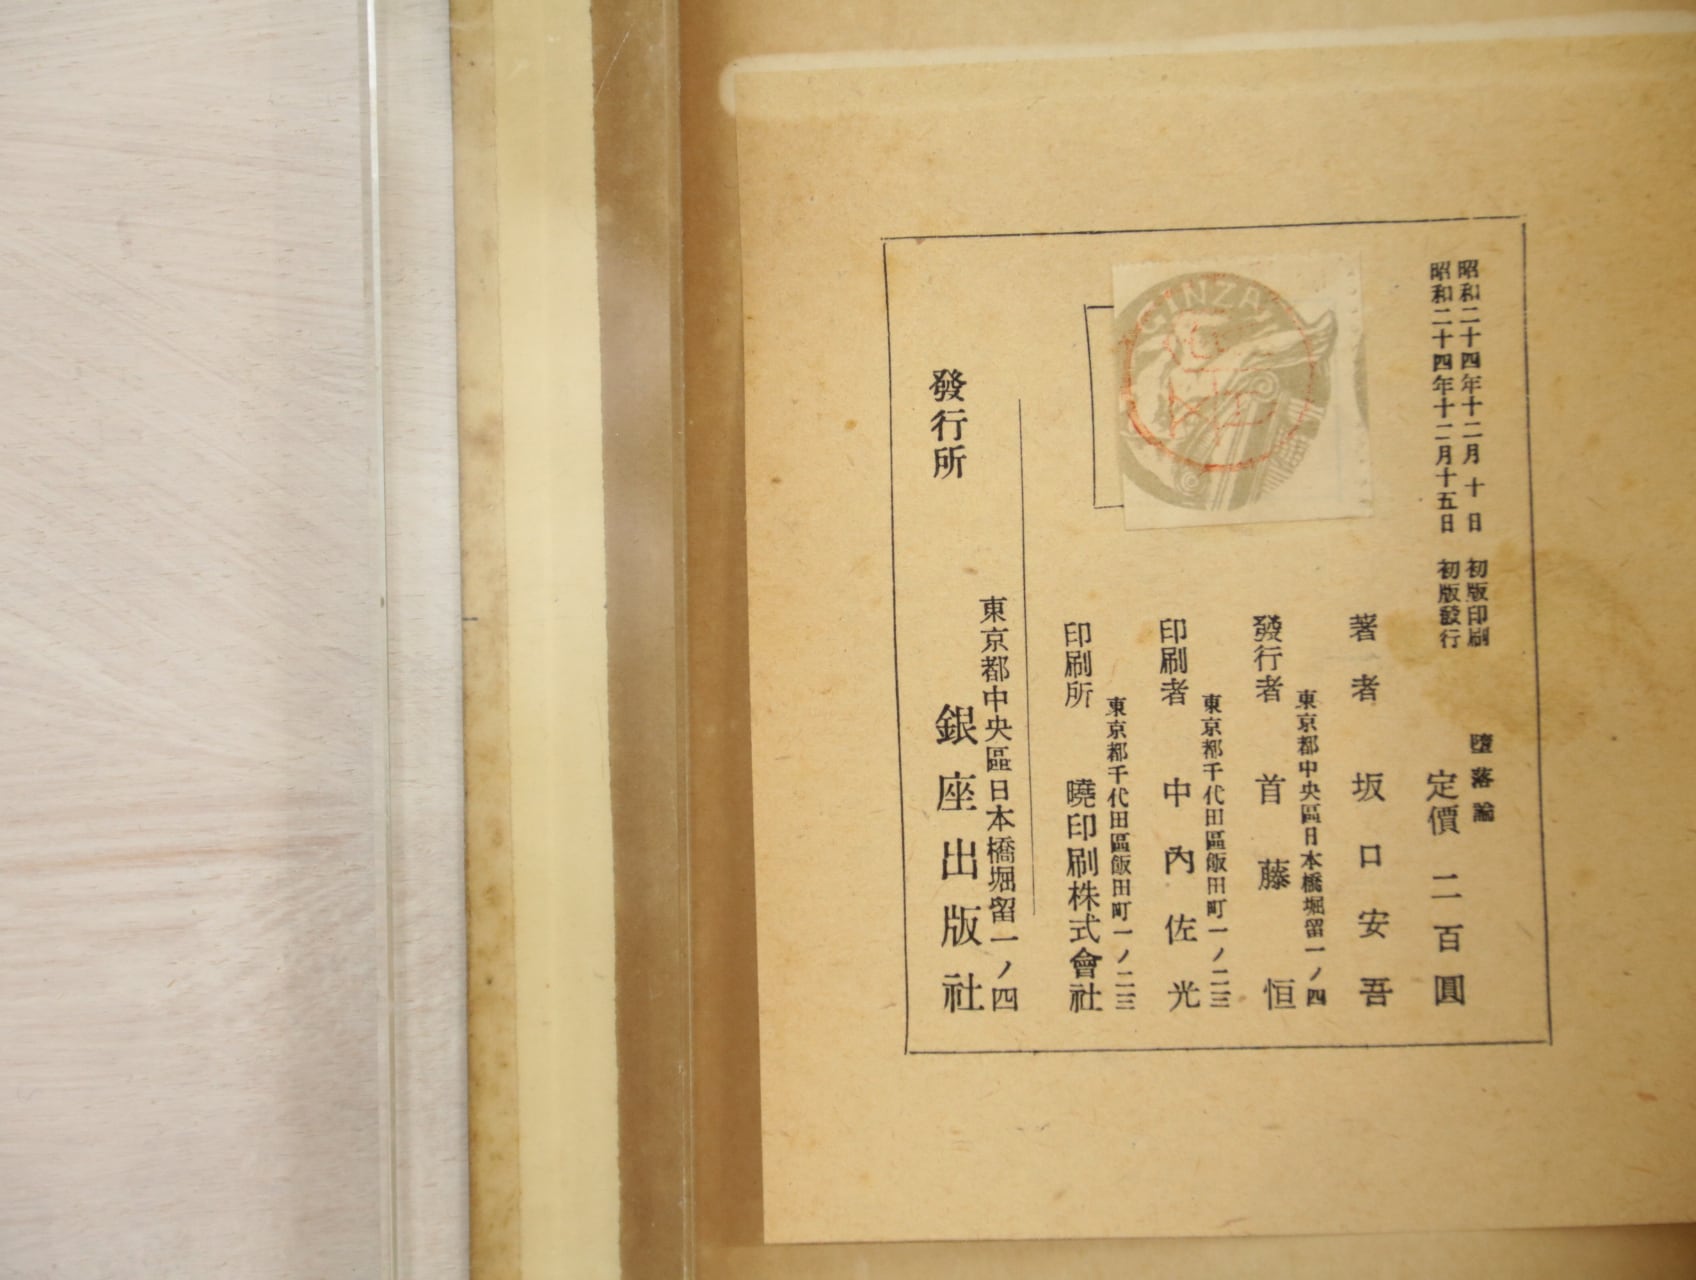 昭和二十四年十二月十日 初版印刷
昭和二十四年十二月十五日 初版發行
墮落論
定價 二百圓
著者 坂口安吾
東京都中央區日本橋堀留一ノ四
發行者 首藤恒
東京都千代田區飯田町一ノ二三
印刷者 中內佐光
東京都千代田區飯田町一ノ二三
印刷所 曉印刷株式會社
東京都中央區日本橋堀留一ノ四
發行所 銀座出版社
GINZA